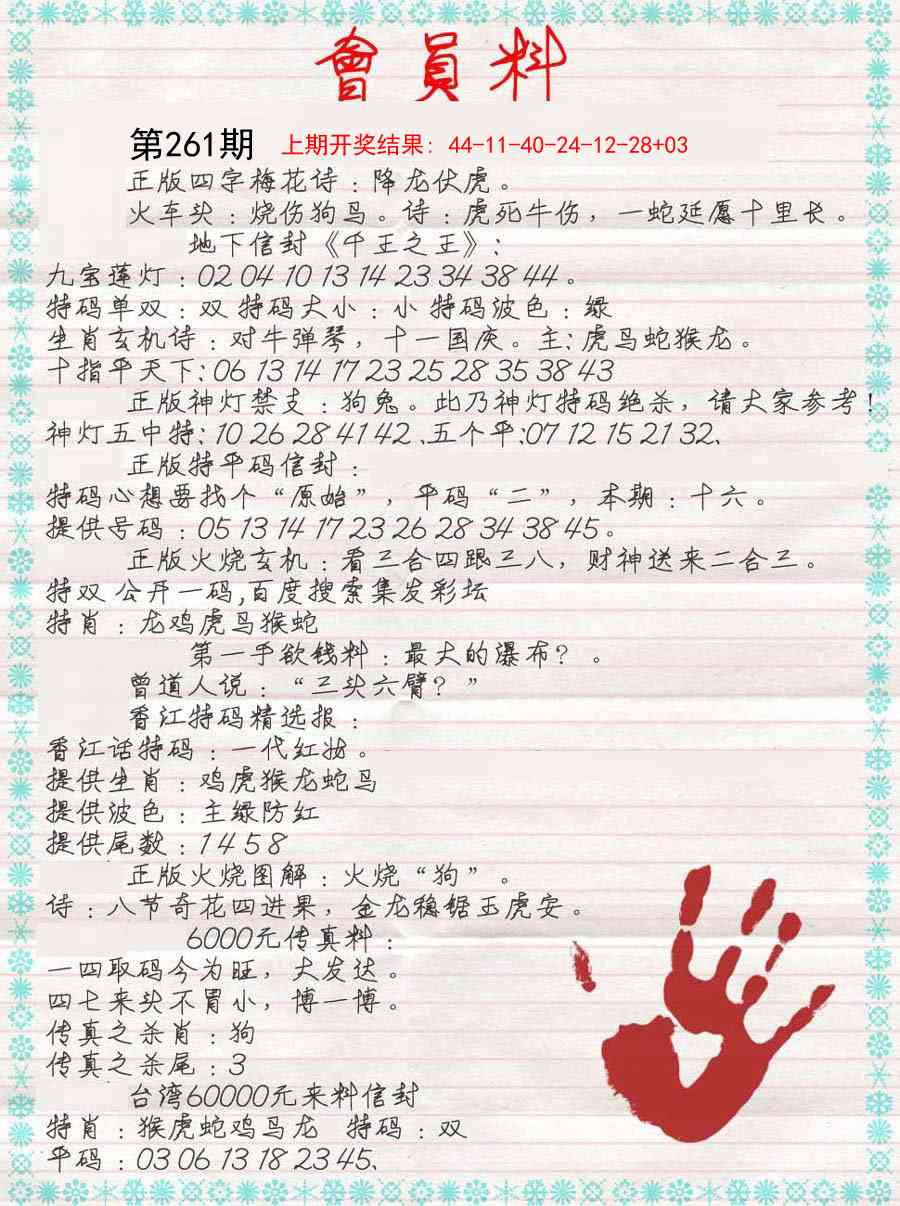 會員料
第261期 上期开奖结果: 44-11-40-24-12-28+03
正版四字梅花诗：降龙伏虎。
火车头：烧伤狗鸟。诗：虎死牛伤，一蛇延愿十里长。
地下信封《千王之王》：
九宝莲灯：02 04 10 13 14 23 34 38 44。
特码单双：双 特码大小：小 特码波色：绿
生肖玄机诗：对牛弹琴，十一国庆。主：虎鸟蛇猴龙。
十指平天下：06 13 14 17 23 25 28 35 38 43
正版神灯禁支：狗兔。此乃神灯特码绝杀，请大家参考！
神灯五中特：10 26 28 41 42 、五个平：07 12 15 21 32、
正版特平码信封：
特码心想要找个“原始”，平码“二”，本期：十六。
提供号码：05 13 14 17 23 26 28 34 38 45。
正版火烧玄机：看三合四跟三八，财神送来二合三。
特双 公开一码,百度搜索集发彩坛
特肖：龙鸡虎鸟猴蛇
第一手欲钱料：最大的瀑布？。
曾道人说：“三头六臂？”
香江特码精选报：
香江话特码：一代红妆。
提供生肖：鸡虎猴龙蛇鸟
提供波色：主绿防红
提供尾数：1 4 5 8
正版火烧图解：火烧“狗”。
诗：八节奇花四进果，金龙稳锯玉虎安。
6000元传真料：
一四取码今为旺，大发达。
四七来头不冒小，博一博。
传真之杀肖：狗
传真之杀尾：3
台湾60000元来料信封
特肖：猴虎蛇鸡鸟龙 特码：双
平码：03 06 13 18 23 45、